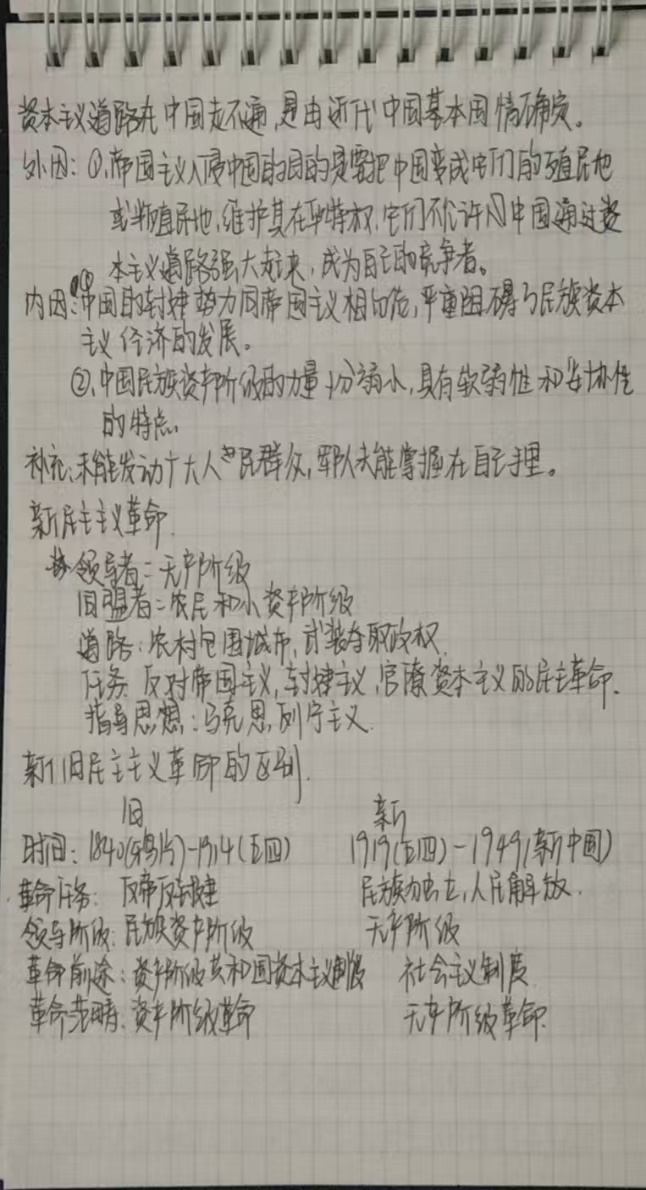 资本主义道路在中国走不通,是由近代中国基本国情确定。
外因:①,帝国主义入侵中国的目的是要把中国变成它们的殖民地
或半殖民地,维护其在华特权,它们不允许中国通过资
本主义道路强大起来,成为自己的竞争者。
内因:①中国的封建势力同帝国主义相勾结,严重阻碍了民族资本
主义经济的发展。
②,中国民族资产阶级的力量十分弱小,具有软弱性和妥协性
的特点。
补充:未能发动广大人民群众,军队未能掌握在自己手里。
新民主主义革命
领导者:无产阶级
同盟者:农民和小资产阶级
道路:农村包围城市,武装夺取政权
任务 反对帝国主义,封建主义,官僚资本主义的民主革命.
指导思想:马克思列宁主义.
新旧民主主义革命的区别.
旧 新
时间:1840(鸦片)-1914(五四) 1919(五四)-1949(新中国)
革命任务: 反帝反封建 民族独立,人民解放.
领导阶级:民族资产阶级 无产阶级
革命前途:资产阶级共和国资本主义制度 社会主义制度
革命范畴:资产阶级革命 无产阶级革命.